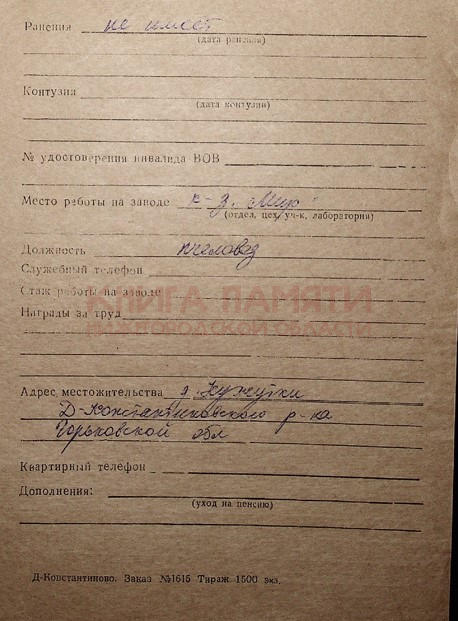 Ранения не имеет
(дата ранения)
Контузия
(дата контузии)
№ удостоверения инвалида ВОВ
Место работы на заводе к-з „Мир"
(отдел, цех, уч-к, лаборатория)
Должность пчеловод
Служебный телефон
Стаж работы на заводе
КНИГА ПАМЯТИ
Награды за труд
НИЖЕГОРОДСКОЙ ОБЛАСТИ
Адрес местожительства д. Кужутки
Д-Константиновского р-на
Горьковской обл
Квартирный телефон
Дополнения:
(уход на пенсию)
Д-Константиново. Заказ №1615 Тираж 1500 экз.